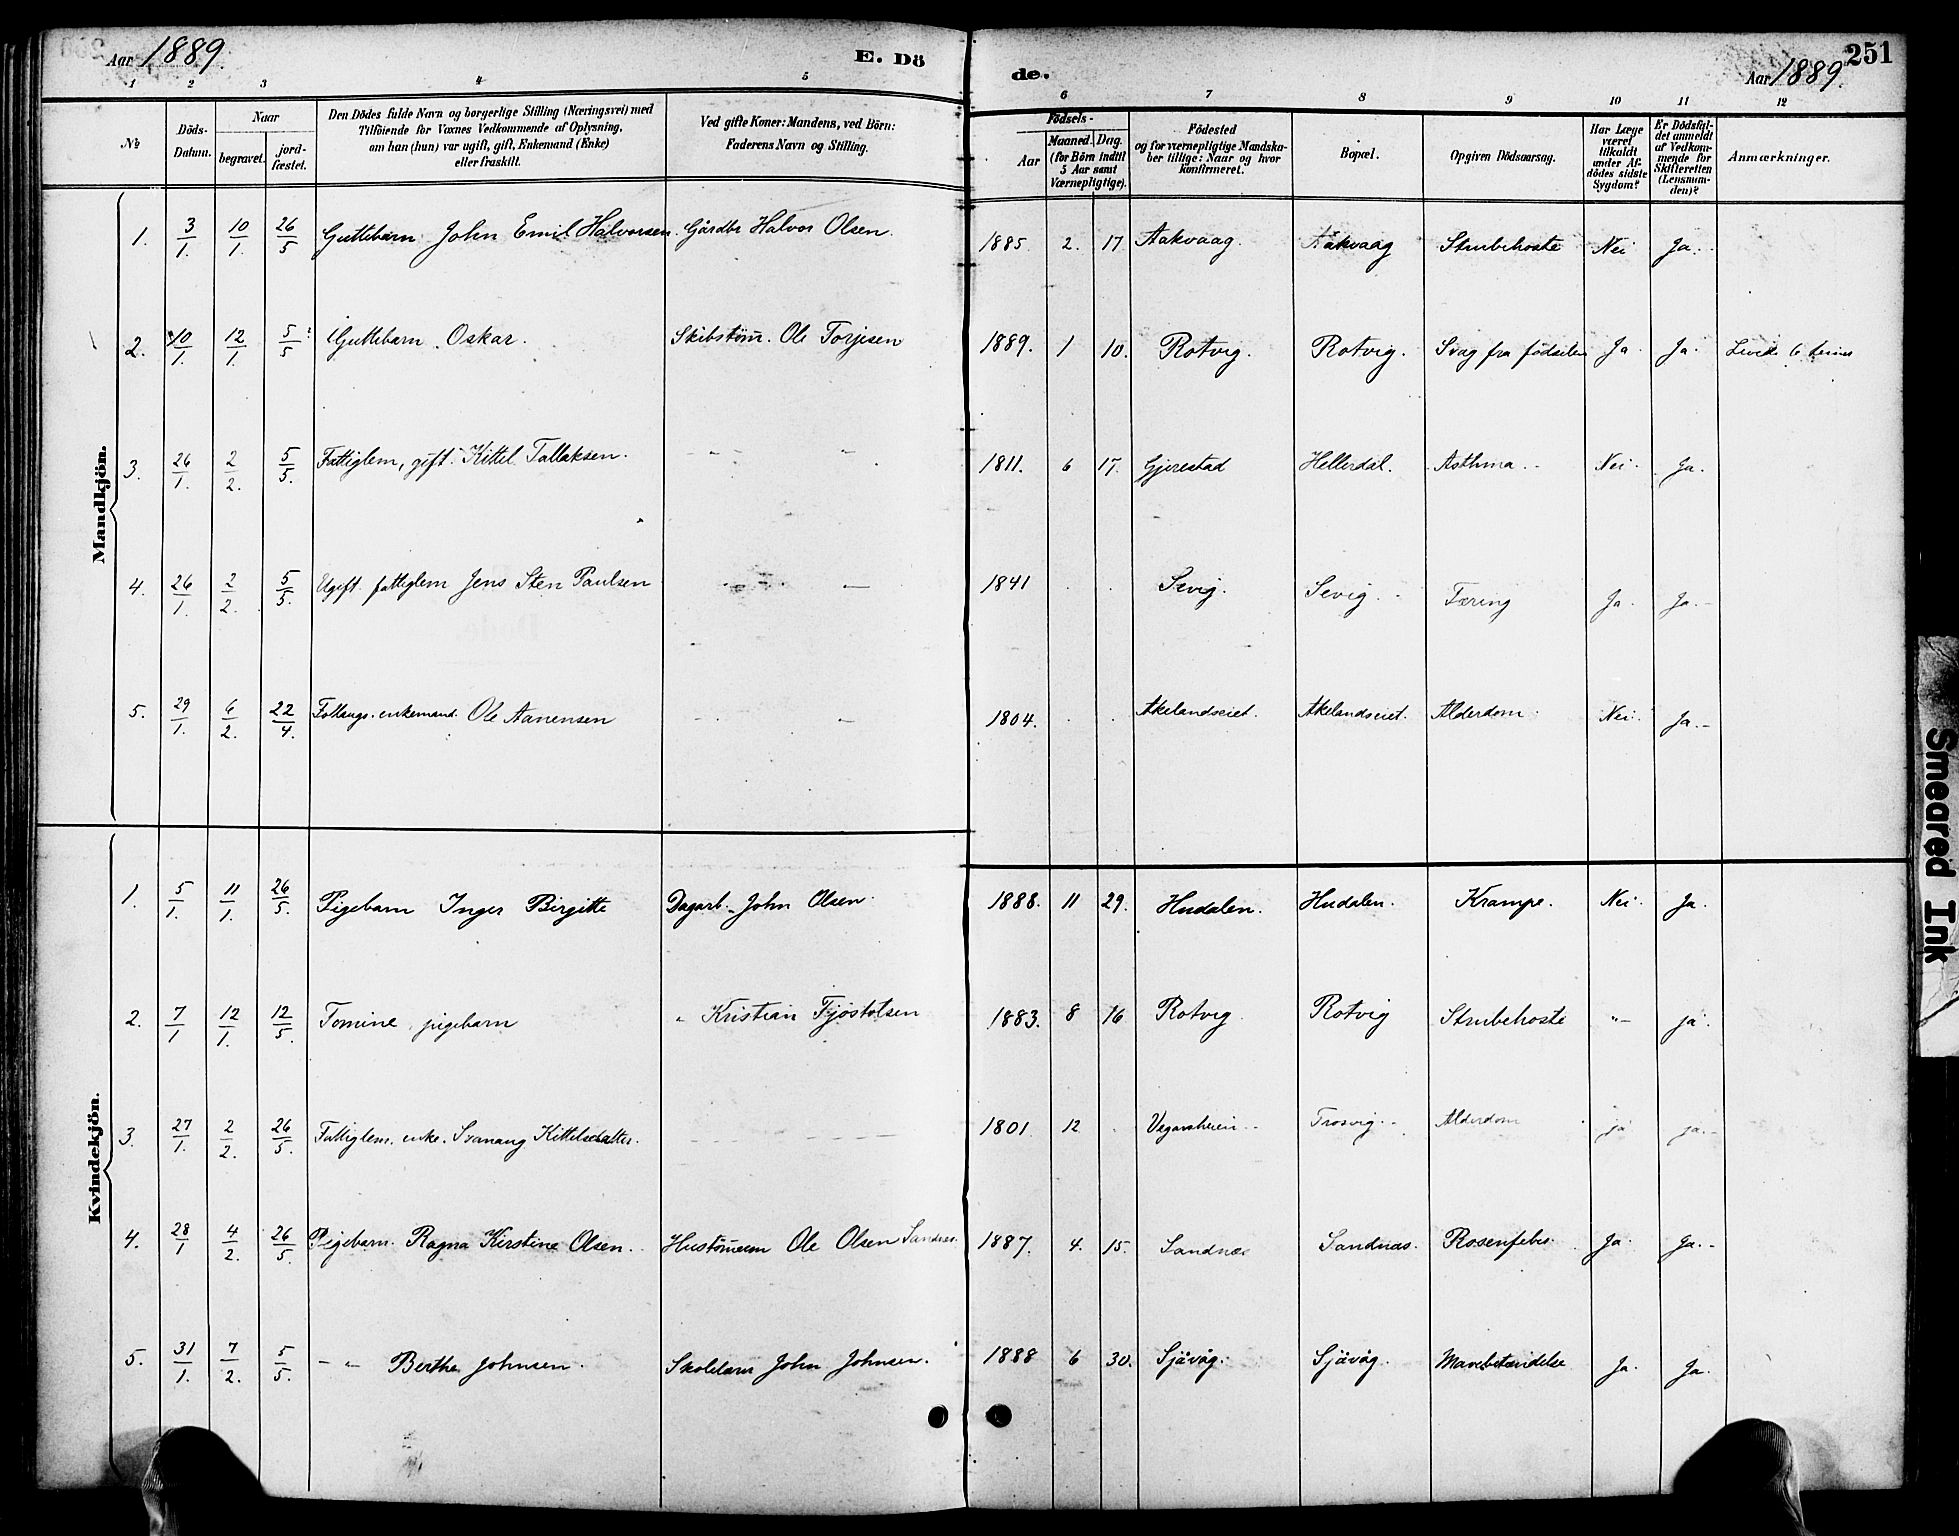 Aar 1889. E. Dö
de. Aar 1889. 251
1 2 3 4 5 6 7 8 9 10 11 12
№ Döds-Datum. Naar begravet. jordfæstet. Den Dödes fulde Navn og borgerlige Stilling (Næringsvei) med Tilföiende for Voxnes Vedkommende af Oplysning, om han (hun) var ugift, gift, Enkemand (Enke) eller fraskilt. Ved gifte Koner: Mandens, ved Börn: Faderens Navn og Stilling. Födsels- Aar Maaned. Dag. (for Börn indtil 5 Aar samt Værnepligtige). Födested og for værnepligtige Mandskaber tillige: Naar og hvor konfirmeret. Bopæl. Opgiven Dödsaarsag. Har Læge været tilkaldt under Afdödes sidste Sygdom? Er Dödsfaldet anmeldt af Vedkommende for Skifteretten (Lensmanden)? Anmærkninger.
Mandkjön.
1. 3/1. 10/1. 26/5 Guttebarn John Emil Halvorsen. Gårdbr Halvor Olsen. 1885. 2. 17. Aakvaag. Aakvaag Strubehoste Nei Ja.
2. 10/1. 12/1. 5/5 Guttebarn. Oskar. Skibstøm. Ole Torjesen 1889. 1 10. Rotvig. Rotvig. Svag fra fødselen Ja. Ja. Levede 6 timer
3. 26/1. 2/2. 5/5. Fattiglem, gift. Kittel Tallaksen. 1811. 6 17. Gjerestad Hellerdal. Asthma Nei. Ja.
4. 26/1. 2/2. 5/5. Ugift fattiglem Jens Sten Paulsen 1841 Sevig. Sevig. Tæring Ja. Ja.
5. 29/1. 6/2. 22/4. enkemand. Ole Aanensen 1804. Akelandseiet. Akelandseiet. Alderdom. Nei. Ja.
Kvindekjön.
1. 5/1. 11/1. 26/5. Pigebarn Inger Birgitte Dagarb. John Olsen. 1888. 11 29. Hudalen. Hudalen. Krampe. Nei. Ja.
2. 7/1 12/1. 12/5. Tomine, pigebarn " Kristian Fjøstolsen 1883. 8 16 Rotvig. Rotvig Strubehoste "- ja.
3. 27/1. 2/2. 26/5. Fattiglem. enke. Svanaug Kittelsdatter. 1801. 12 Vegarsheien Trosvig. Alderdom ja ja.
4. 28/1 4/2. 26/5. Pigebarn. Ragna Kirstine Olsen. Hustømmerm Ole Olsen Sandnes. 1887. 4. 15. Sandnæs Sandnæs. Rosenfeber Ja. Ja.
5. 31/1. 7/2. 5/5. - " Berthe Johnsen. Skolelærer John Johnsen. 1888 6 30. Sjåvåg. Sjåvåg. Mavebetændelse Ja. Ja.
Smeared Ink